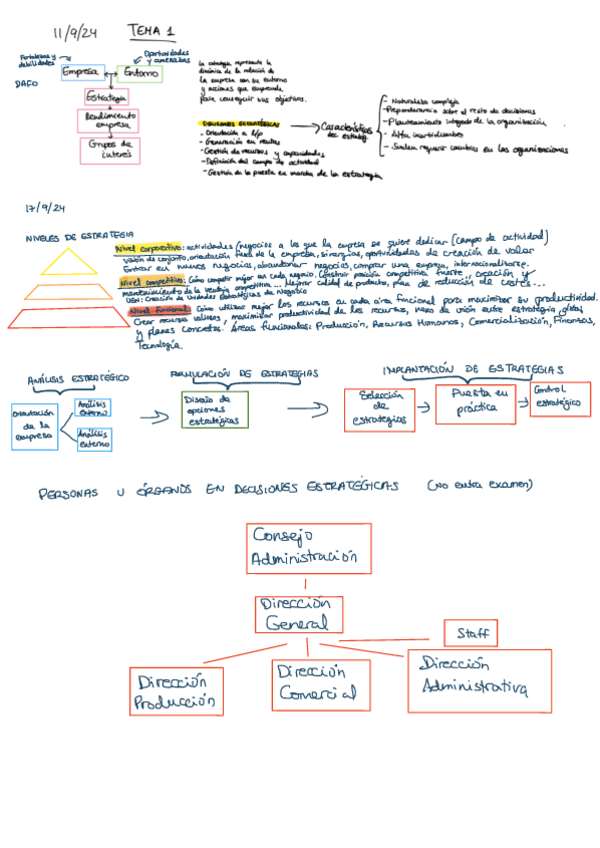 11/9/24 TEMA 1
Fortalezas y debilidades
Oportunidades y amenazas
DAFO
Empresa
Entorno
Estrategia
Rendimiento empresa
Grupos de interés
La estrategia representa la
dinámica de la relación de
la empresa con su entorno
y acciones que emprende
para conseguir sus objetivos.
DECISIONES ESTRATÉGICAS
- Orientación a l/p
- Generación en rentas
- Gestión de recursos y capacidades
- Definición del campo de actividad
- Gestión de la puesta en marcha de la estrategia
Características
- Naturaleza compleja
- Preponderancia sobre el resto de decisiones
- Planteamiento integrado de la organización
- Alta incertidumbre
- Suelen requerir cambios en las organizaciones
17/9/24
NIVELES DE ESTRATEGIA
Nivel corporativo: actividades/negocios a los que la empresa se quiere dedicar [campo de actividad]
visión de conjunto, orientación final de la empresa, sinergias, oportunidades de creación de valor
Entrar en nuevos negocios, abandonar negocios, comprar una empresa, internacionalizarse.
Nivel competitivo: Cómo competir mejor en cada negocio. Construir posición competitiva fuerte, creación y
mantenimiento de la ventaja competitiva... Mejorar calidad de productos, plan de reducción de costes...
UEN: Creación de Unidades Estratégicas de Negocio
Nivel funcional: Cómo utilizar mejor los recursos en cada área funcional para maximizar su productividad.
Crear recursos valiosos, maximizar productividad de los recursos, nexo de unión entre estrategia global
y planes concretos. / Áreas funcionales: Producción, Recursos Humanos, Comercialización, Finanzas,
Tecnología.
ANÁLISIS ESTRATÉGICO
FORMULACIÓN DE ESTRATEGIAS
IMPLANTACIÓN DE ESTRATEGIAS
Orientación
de la
empresa
Análisis
externo
Análisis
interno
Diseño de
opciones
estratégicas
Selección
de
estrategias
Puesta en
práctica
Control
estratégico
PERSONAS U ÓRGANOS EN DECISIONES ESTRATÉGICAS (no entra examen)
Consejo
Administración
Dirección
General
Staff
Dirección
Producción
Dirección
Comercial
Dirección
Administrativa